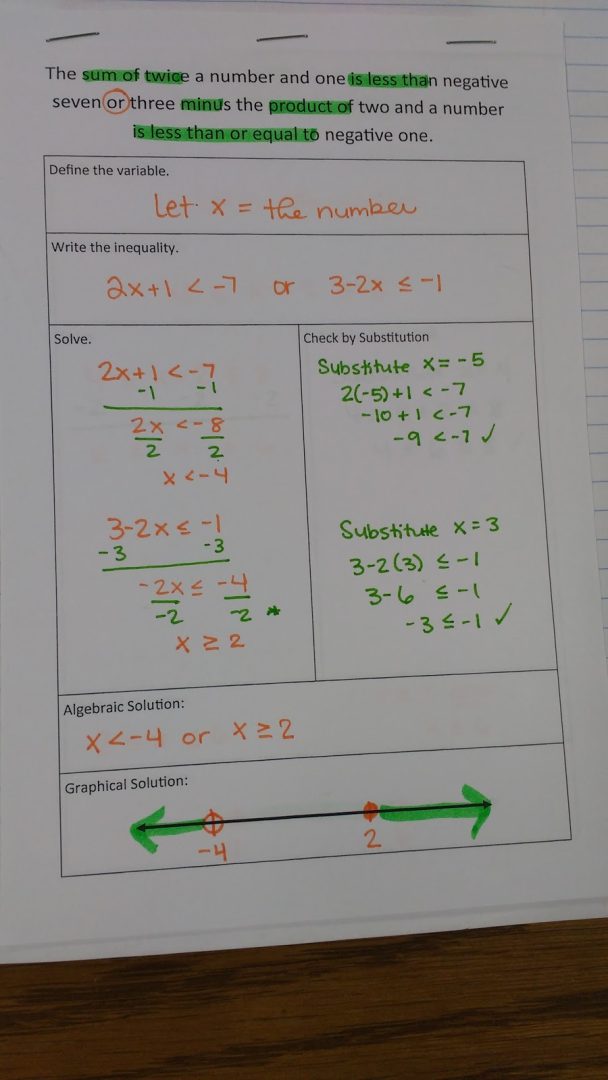 The sum of twice a number and one is less than negative
seven or three minus the product of two and a number
is less than or equal to negative one.
Define the variable.
Let x = the number
Write the inequality.
2x+1 < -7 or 3-2x ≤ -1
Solve.
2x+1 < -7
-1 -1
2x < -8
2 2
x < -4
3-2x ≤ -1
-3 -3
-2x ≤ -4
-2 -2 *
x ≥ 2
Check by Substitution
Substitute x = -5
2(-5)+1 < -7
-10+1 < -7
-9 < -7 ✓
Substitute x = 3
3-2(3) ≤ -1
3-6 ≤ -1
-3 ≤ -1 ✓
Algebraic Solution:
x < -4 or x ≥ 2
Graphical Solution:
-4 2